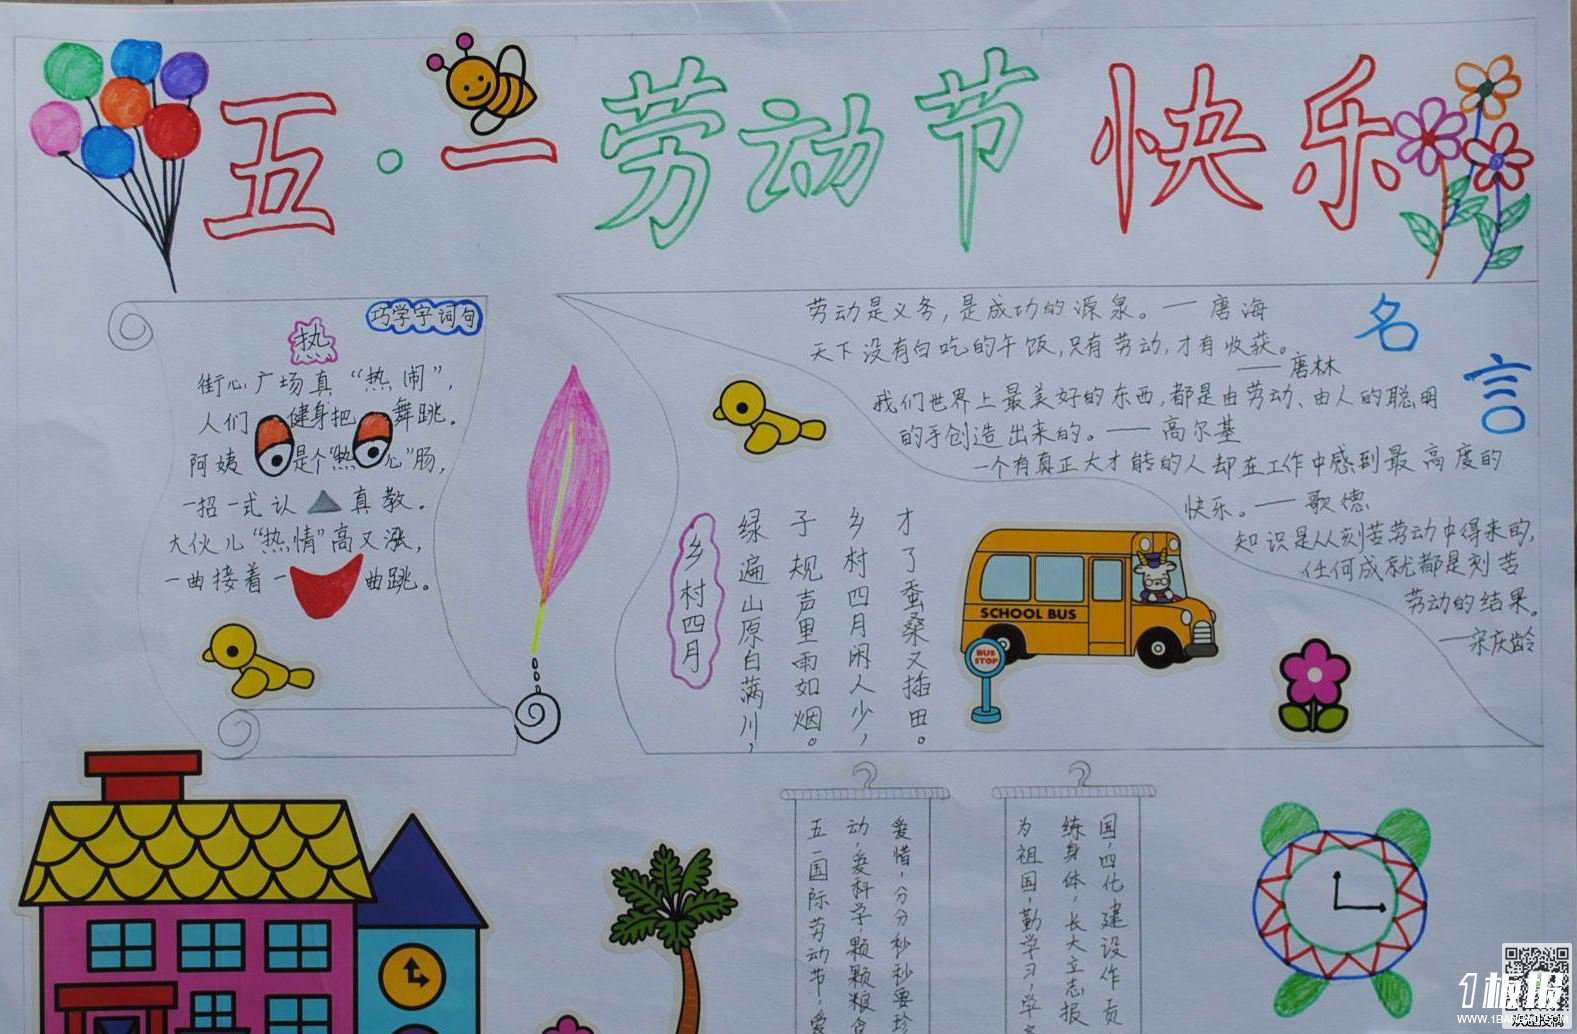 五·一劳动节快乐
巧学字词句
热
街心广场真“热闹”，
人们健身把舞跳。
阿姨是个“热心”肠，
一招一式认真教。
大伙儿“热情”高又涨，
一曲接着一曲跳。
名言
劳动是义务，是成功的源泉。——唐海
天下没有白吃的午饭，只有劳动，才有收获。
——唐林
我们世界上最美好的东西，都是由劳动、由人的聪明
的手创造出来的。——高尔基
一个有真正大才能的人却在工作中感到最高度的
快乐。——歌德
知识是从刻苦劳动中得来的，
任何成就都是刻苦
劳动的结果。
——宋庆龄
乡村四月
绿遍山原白满川，
子规声里雨如烟。
乡村四月闲人少，
才了蚕桑又插田。
SCHOOL BUS
BUS
STOP
五一国际劳动节，爱
动，爱科学，颗颗粮食
爱惜，分分秒秒要珍
为祖国，勤学习，学
练身体，长大立志报
国，四化建设作贡
1板报
WWW.1BANBAO.COM
欢迎扫码